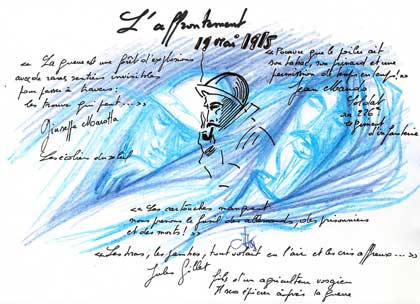 L'affrontement
19 mai 1915
« La guerre est une forêt d'explosions
avec de rares sentiers invisibles
pour passer à travers :
les trouve qui peut... »
Giuseppe Marotta
Les écoliers du soleil
« Pourvu que le poilu ait
son tabac, son pinard et une
permission de temps en temps ! »
Jean
Soldat
au 226e
régiment
d'infanterie
« Les cartouches manquent
nous prenons le fusil des allemands, des prisonniers
et des morts ! »
« Les bras, les jambes, tout volait en l'air et les cris affreux... »
Jules Gillet
fils d'un agriculteur vosgien
Il sera épicier après la guerre